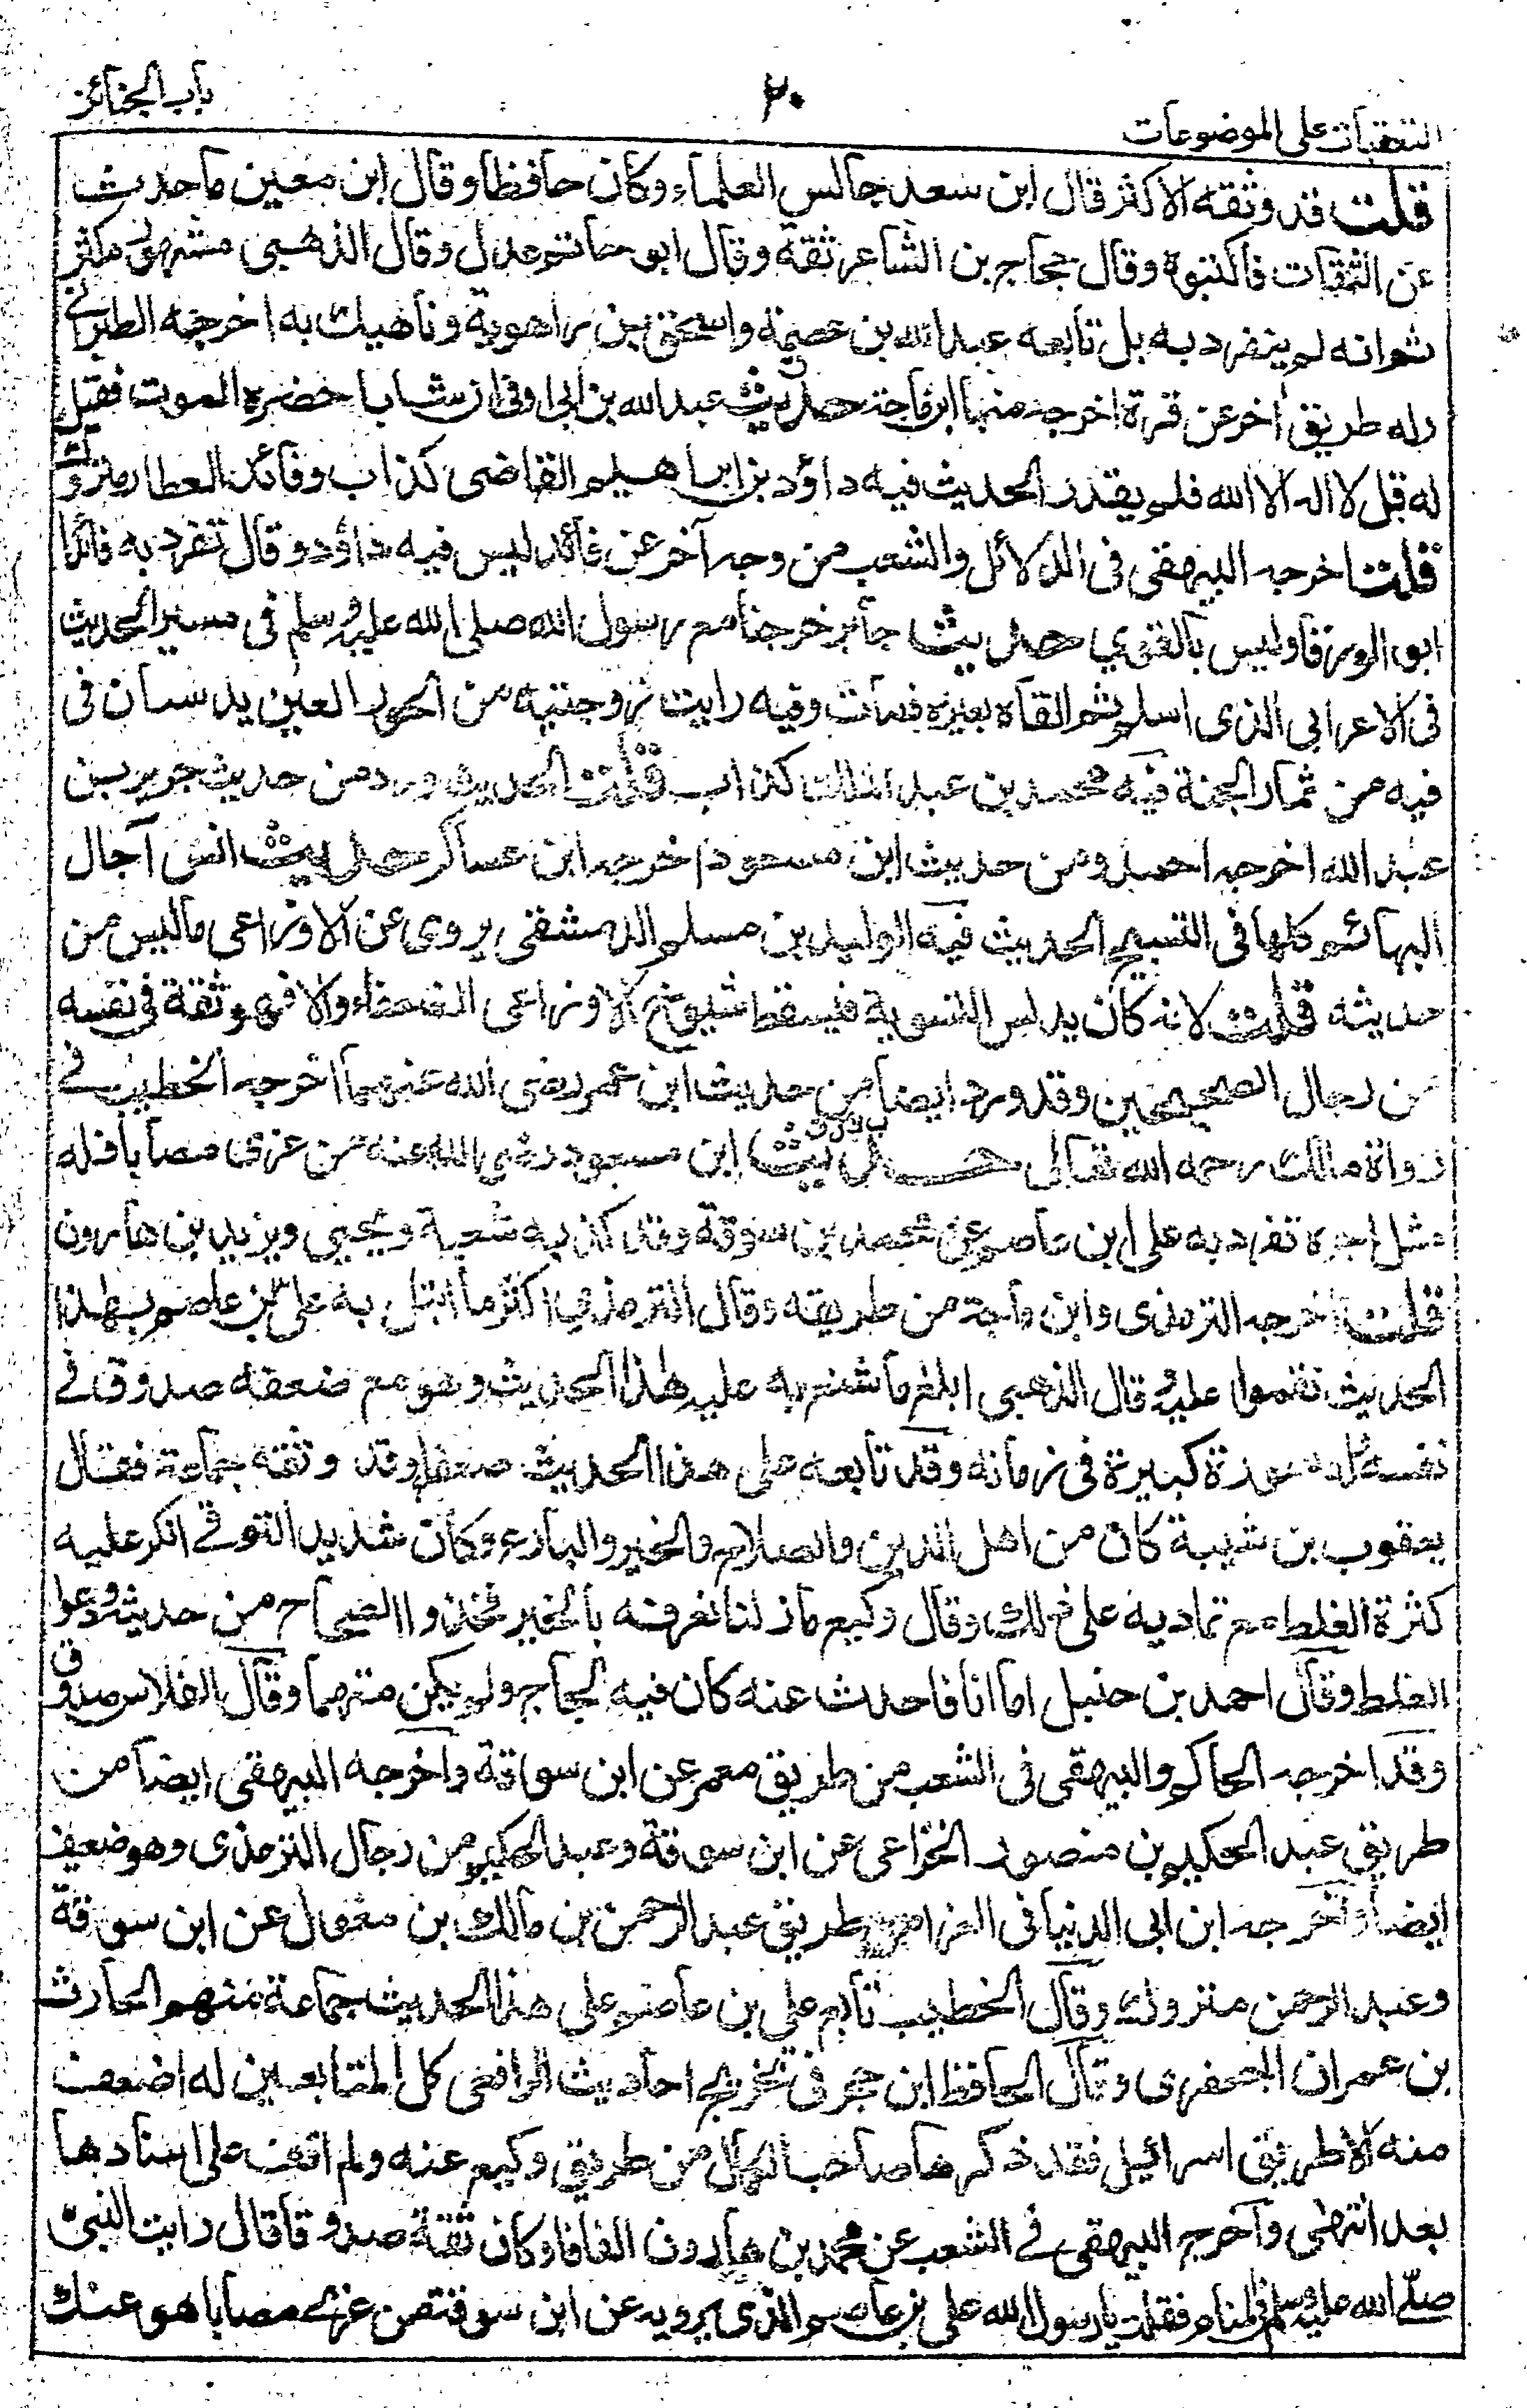 باب الجنائز
٢٠
التعقبات على الموضوعات
قلت قد وثقه الاكثر قال ابن سعد جالس العلماء وكان حافظا وقال ابن معين ما حدث
عن الثقات فاكتبوه وقال حجاج بن الشاعر ثقة وقال ابو حاتم عدل وقال الذهبى مشهور مكثر
ثم انه لم ينفرد به بل تابعه عبد الله بن عصمة واسحق بن راهوية وناهيك به اخرجه الطبرانے
وله طريق آخر عن قرة اخرجه منها ابن ماجة حديث عبد الله بن ابى اوفى ان شابا حضره الموت فقيل
له قل لا اله الا الله فلم يقدر الحديث فيه داؤد بن ابراهيم القاضى كذاب وفائد العطار متروك
قلت اخرجه البيهقى فى الدلائل والشعب من وجه آخر عن فائد ليس فيه داؤد وقال تفرد به فائد
ابو الورقاء وليس بالقوي حديث جابر خرجنا مع رسول الله صلى الله عليه وسلم فى مسير الحديث
فى الاعرابى الذى اسلم ثم القاه بعيره فمات وفيه رايت زوجتيه من الحور العين يدسان فى
فيه من ثمار الجنة فيه محمد بن عبد الملك كذاب قلت الحديث ورد من حديث جرير بن
عبد الله اخرجه احمد ومن حديث ابن مسعود اخرجه ابن عساكر حديث انس آجال
البهائم كلها فى التسبيح الحديث فيه الوليد بن مسلم الدمشقى يروى عن الاوزاعى ماليس من
حديثه قلت لانه كان يدلس التسوية فيسقط شيوخ الاوزاعى الضعفاء والا فهو ثقة فى نفسه
من رجال الصحيحين وقد ورد ايضا من حديث ابن عمر رضى الله عنهما اخرجه الخطيب فے
رواة مالك رحمه الله تعالى حديث ابن مسعود رضى الله عنه من عزى مصابا فله
مثل اجره تفرد به على ابن عاصم عن محمد بن سوقة وقد كذبه شعبة ويحيى ويزيد بن هارون
قلت اخرجه الترمذى وابن ماجة من طريقه وقال الترمذي اكثر ما ابتلى به على بن عاصم بهذا
الحديث نقموا عليه وقال الذهبى ابلغ ما شنع به عليه هذا الحديث وهو مع ضعفه صدوق فے
نفسه له صورة كبيرة فى زمانه وقد تابعه على هذا الحديث ضعفاء وقد وثقه جماعة فقال
يعقوب بن شيبة كان من اهل الدين والصلاح والخير والبارع وكان شديد التوقے انكر عليه
كثرة الغلط مع تماديه على ذلك وقال وكيع مازلنا نعرفه بالخير فخذوا الصحاح من حديثه ودعوا
الغلط وقال احمد بن حنبل اما انا فاحدث عنه كان فيه لجاج ولم يكن متهما وقال الفلاس صدوق
وقد اخرجه الحاكم والبيهقى فى الشعب من طريق معمر عن ابن سوقة واخرجه البيهقى ايضا من
طريق عبد الحكيم بن منصور الخزاعى عن ابن سوقة وعبد الحكيم من رجال الترمذى وهو ضعيف
ايضا واخرجه ابن ابى الدنيا فى العزاء من طريق عبد الرحمن بن مالك بن مغول عن ابن سوقة
وعبد الرحمن متروك وقال الخطيب تابع على بن عاصم على هذا الحديث جماعة منهم الحارث
بن عمران الجعفرى وقال الحافظ ابن حجر فى تخريج احاديث الرافعى كل المتابعين له اضعف
منه الا طريق اسرائيل فقد ذكرها صاحب الكمال من طريق وكيع عنه ولم اقف على اسنادها
بعد انتهى وآخرجه البيهقى فے الشعب عن محمد بن هارون الفافا وكان ثقة صدوقا قال رايت النبى
صلى الله عليه وسلم فى المنام فقلت يا رسول الله على بن عاصم الذى يرويه عن ابن سوقة من عزى مصابا هو عنك